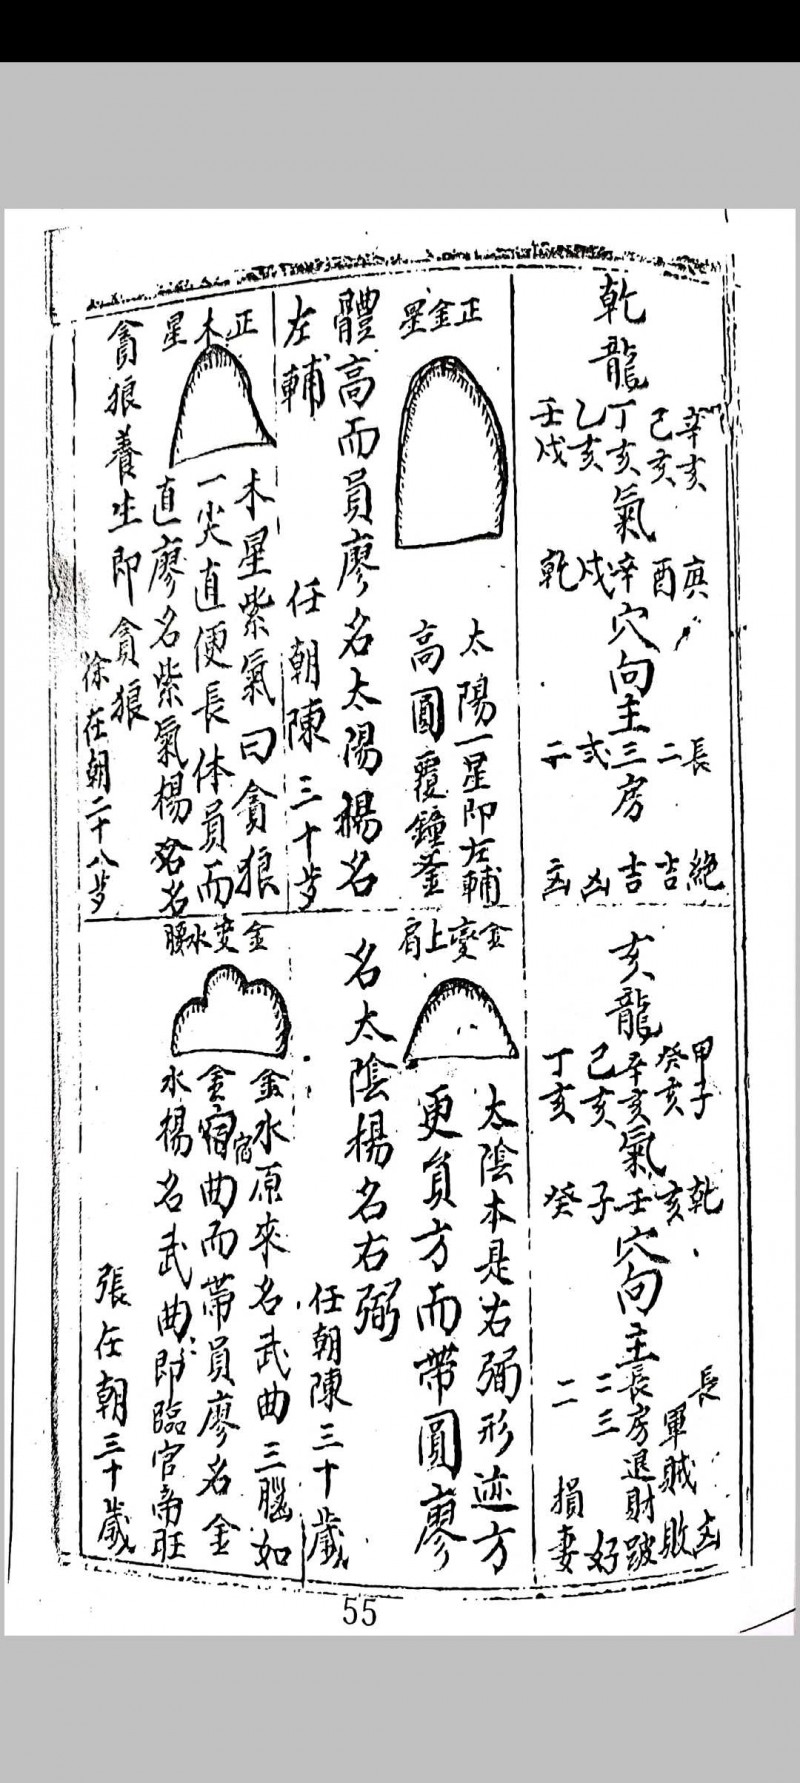 乾龍
辛亥 己亥 丁亥 乙亥 壬戌
氣
庚 酉 辛 戌 乾
穴向主
長 二 三 弍 二
房
絶 吉 吉 凶 凶
亥龍
甲子 癸亥 辛亥 己亥 丁亥
氣
乾 亥 壬 子 癸
穴向主
長 軍賊敗 凶
長房退財跛
二三 好
二 損妻
正金星
太陽一星即左輔
高圓覆鐘釜
體高而員廖名太陽楊名
左輔
任朝陳三十歩
正木星
木星紫氣曰貪狼
一尖直便長体員而
直廖名紫氣楊名
貪狼養生即貪狼
徐在朝二十八歩
金變上肩
太陰本是右弼形迹方
更員方而帶圓廖
名太陰楊名右弼
任朝陳三十歲
金变水腰
金水原來名武曲三腦如
金宿曲而帶員廖名金
宿
水楊名武曲即臨官帝旺
張在朝三十歲
55